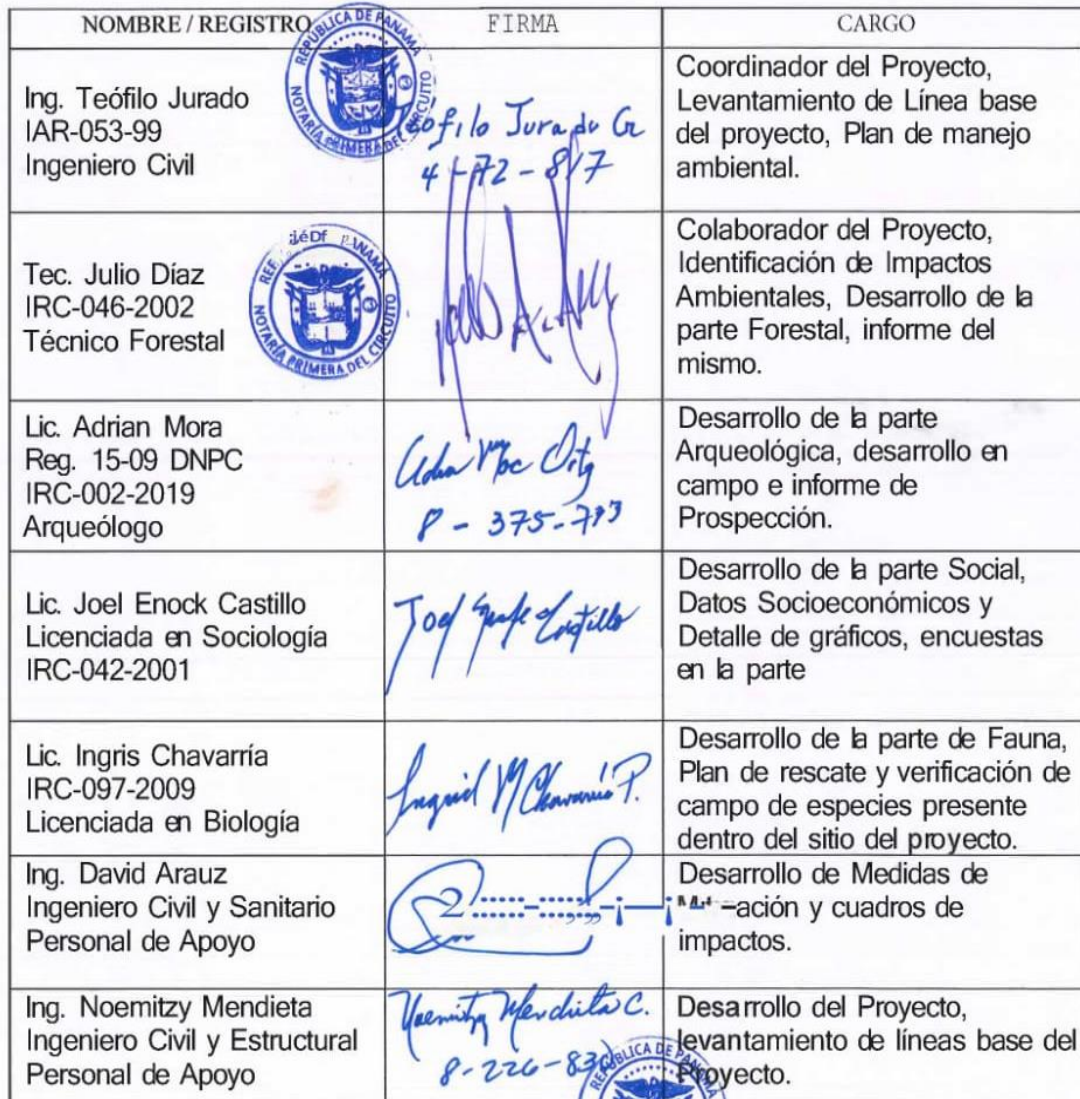 NOMBRE / REGISTRO
FIRMA
CARGO
Ing. Teófilo Jurado
IAR-053-99
Ingeniero Civil
REPÚBLICA DE PANAMÁ
NOTARÍA PRIMERA DEL CIRCUITO
Teófilo Jurado Cr
4-72-817
Coordinador del Proyecto,
Levantamiento de Línea base
del proyecto, Plan de manejo
ambiental.
Tec. Julio Díaz
IRC-046-2002
Técnico Forestal
PANAMÁ
NOTARÍA PRIMERA DEL CIRCUITO
Colaborador del Proyecto,
Identificación de Impactos
Ambientales, Desarrollo de la
parte Forestal, informe del
mismo.
Lic. Adrian Mora
Reg. 15-09 DNPC
IRC-002-2019
Arqueólogo
8-375-
Desarrollo de la parte
Arqueológica, desarrollo en
campo e informe de
Prospección.
Lic. Joel Enock Castillo
Licenciada en Sociología
IRC-042-2001
Joel Castillo
Desarrollo de la parte Social,
Datos Socioeconómicos y
Detalle de gráficos, encuestas
en la parte
Lic. Ingris Chavarría
IRC-097-2009
Licenciada en Biología
Ingrid M Chavarría P.
Desarrollo de la parte de Fauna,
Plan de rescate y verificación de
campo de especies presente
dentro del sitio del proyecto.
Ing. David Arauz
Ingeniero Civil y Sanitario
Personal de Apoyo
Desarrollo de Medidas de
ación y cuadros de
impactos.
Ing. Noemitzy Mendieta
Ingeniero Civil y Estructural
Personal de Apoyo
Noemitzy Mendieta C.
8-226-830
REPÚBLICA DE PANAMÁ
Desarrollo del Proyecto,
levantamiento de líneas base del
Proyecto.